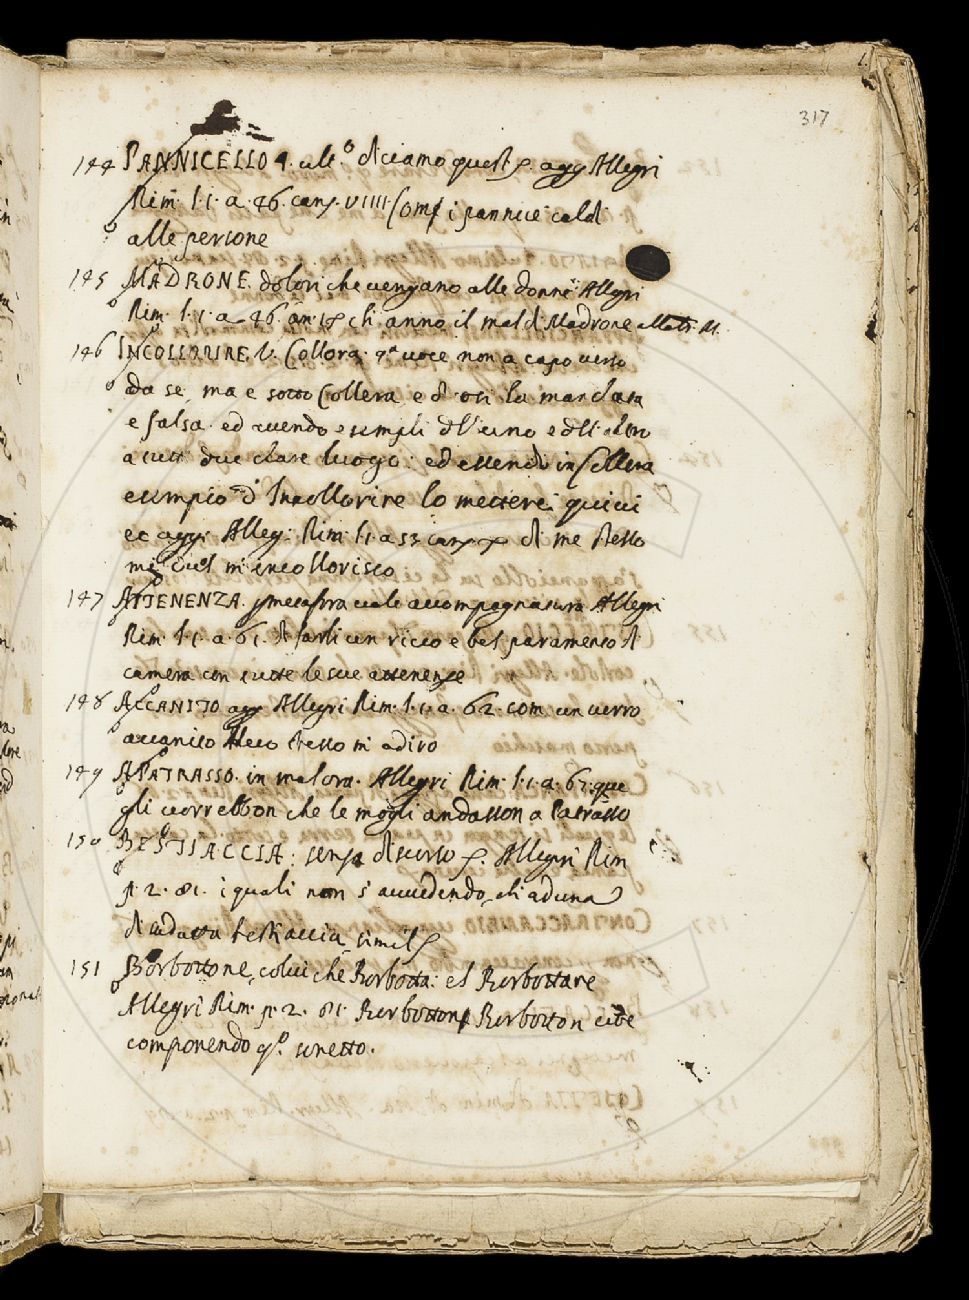 317
144 PANNICELLO 9. ult.o diciamo quest p. agg Allegri
Rim. l. 1. a. 46. canz. VIIII. Comp i pannice caldi
alle persone
145 MADRONE. dolori che vengano alle donne. Allegri
Rim. l. 1. a 46. an. 18 ch anno il mal d Madrone Matt. M.
146 INCOLLORIRE. V. Collora. qa voce non a capo verso
da se, ma e sotto Collera, e d ori la mandata
e falsa. ed avendo esempli dll uno e dll altro
a tutti due dare luogo: ed essendo in Collera
esempio d Incollorire lo metterei quivi
ec agg. Alleg. Rim. l. 1. a 53 canz di me stesso
mi m incollorisco
147 ATTENENZA. p metafora vale accompagnatura Allegri
Rim. l. 1. a. 61. d farli un ricco e bel paramento d
camera con tutte le sue attenenze
148 ACCANITO agg Allegri Rim. l. 1. a. 62. com un verro
accanito Meco stesso m adiro
149 A PATRASSO. in malora. Allegri Rim. l. 1. a. 62. que
gli vorrebbon che le mogli andasson a Patrasso
150 BESTIACCIA: senza discorso p. Allegri Rim
p. 2. 81. i quali non s avvedendo, ch aduna
d bestiaccia simil
151 Borbottone, colui che Borbotta: el Borbottare
Allegri Rim. p. 2. 81. Borbottone Borbotton
componendo qo. sonetto.